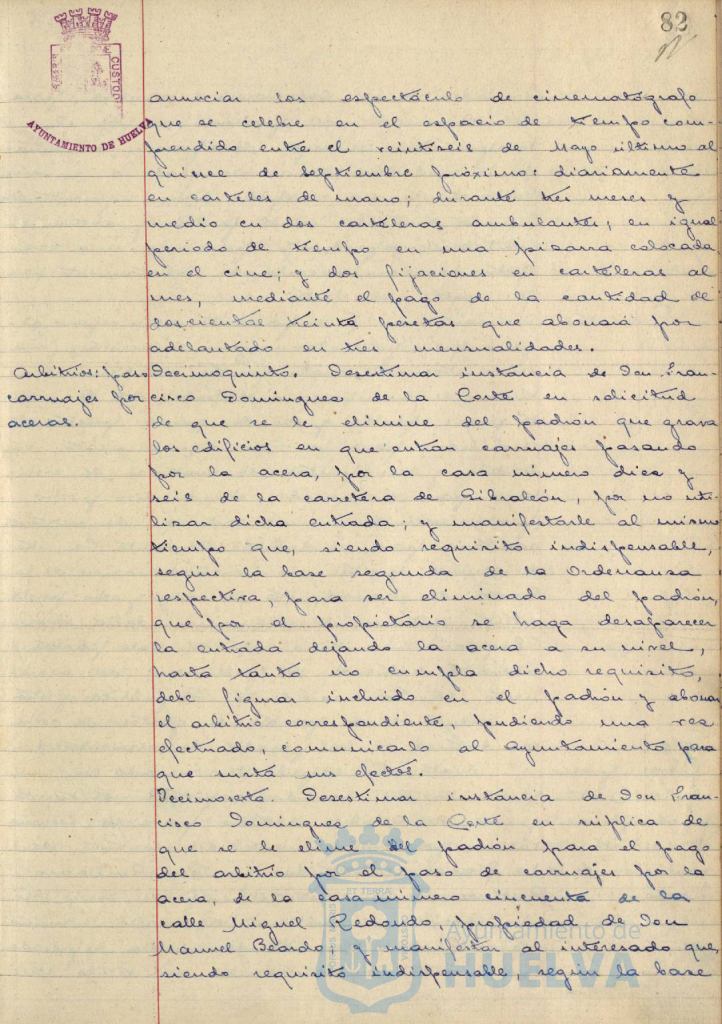 82
CUSTOD
AYUNTAMIENTO DE HUELVA
anunciar los espectáculo de cinematógrafo
que se celebre en el espacio de tiempo com-
prendido entre el veintiseis de Mayo último al
quince de Septiembre próximo: diariamente
en carteles de mano; durante tres meses y
medio en dos carteleras ambulantes; en igual
periodo de tiempo en una pizarra colocada
en el cine; y dos fijaciones en carteleras al
mes, mediante el pago de la cantidad de
doscientas treinta pesetas que abonará por
adelantado en tres mensualidades.
Arbitrios: paso
carruajes por
aceras.
Decimoquinto. Desestimar instancia de Don Fran-
cisco Dominguez de la Corte en solicitud
de que se le elimine del padrón que grava
los edificios en que entran carruajes pasando
por la acera, por la casa número diez y
seis de la carretera de Gibraleón, por no uti-
lizar dicha entrada; y manifestarle al mismo
tiempo que, siendo requisito indispensable,
según la base segunda de la Ordenanza
respectiva, para ser eliminado del padrón,
que por el propietario se haga desaparecer
la entrada dejando la acera a su nivel,
hasta tanto no cumpla dicho requisito,
debe figurar incluido en el padrón y abonar
el arbitrio correspondiente, pudiendo una vez
efectuado, comunicarlo al Ayuntamiento para
que surta sus efectos.
Decimosexto. Desestimar instancia de Don Fran-
cisco Dominguez de la Corte en súplica de
que se le elime del padrón para el pago
del arbitrio por el paso de carruajes por la
acera, de la casa número cincuenta de la
calle Miguel Redondo, propiedad de Don
Manuel Beardo; y manifestar al interesado que,
siendo requisito indispensable, según la base
ET TERRÆ
Ayuntamiento de
HUELVA